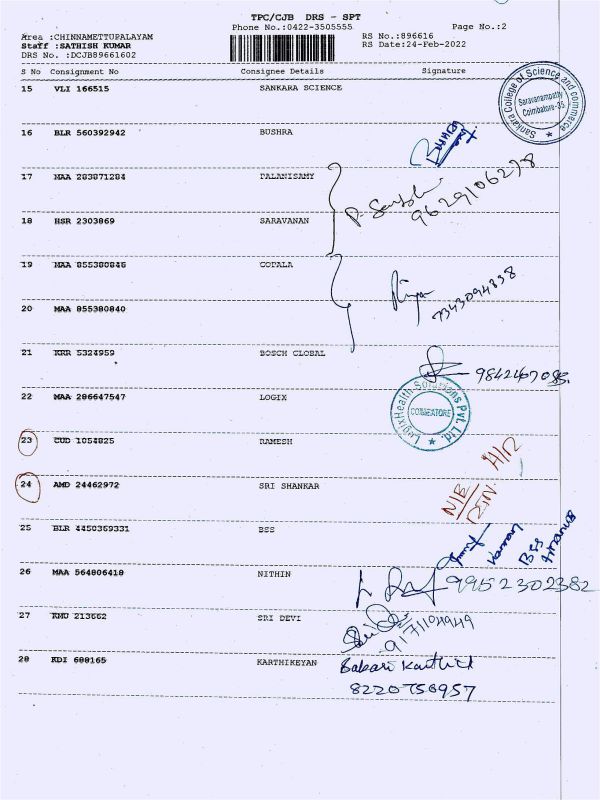 TPC/CJB DRS - SPT
Phone No.:0422-3505555 Page No.:2
Area :CHINNAMETTUPALAYAM RS No.:896616
Staff :SATHISH KUMAR RS Date:24-Feb-2022
DRS No. :DCJB89661602
S No Consignment No Consignee Details Signature
15 VLI 166515 SANKARA SCIENCE
Sankara College of Science and commerce
Saravanampatty
Coimbatore-35
16 BLR 560392942 BUSHRA
17 MAA 283871284 PALANISAMY
9629106278
18 HSR 2303869 SARAVANAN
19 MAA 855380846 GOPALA
7343094838
20 MAA 855380840
21 KRR 5324959 BOSCH GLOBAL
9842467085
22 MAA 286647547 LOGIX
LogixHealth Solutions Pvt. Ltd.
COIMBATORE
23 CUD 1054825 RAMESH
24 AMD 24462972 SRI SHANKAR
25 BLR 4450369331 BSS
Kannan
BSS
26 MAA 564806418 NITHIN
9952302382
27 KMU 213662 SRI DEVI
28 KDI 688165 KARTHIKEYAN
8220756957